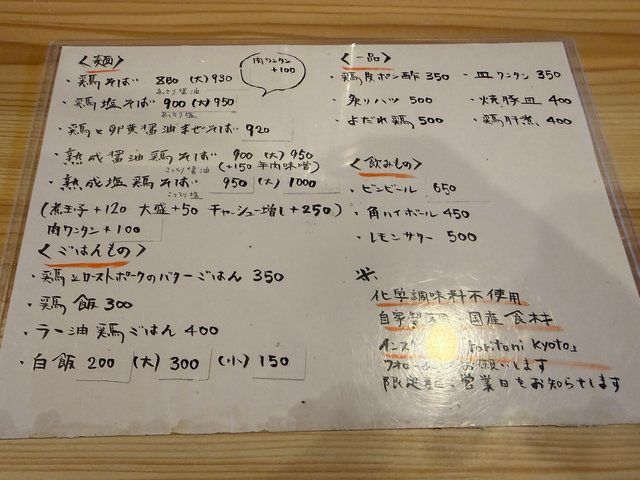 〈麺〉
・鶏そば 880 (大)930
あっさり醤油
・鶏塩そば 900 (大)950
あっさり塩
・鶏と卵黄醤油まぜそば 920
・熟成醤油鶏そば 900 (大)950
こってり醤油 (+150 羊肉味噌)
・熟成塩鶏そば 950 (大)1000
こってり塩
(煮玉子+120 大盛+50 チャーシュー増し+250)
肉ワンタン+100
肉ワンタン
+100
〈ごはんもの〉
・鶏とローストポークのバターごはん 350
・鶏飯 300
・ラー油鶏ごはん 400
・白飯 200 (大) 300 (小) 150
〈一品〉
・鶏皮ポン酢 350 ・皿ワンタン 350
・炙りハツ 500 ・焼豚皿 400
・よだれ鶏 500 ・鶏肝煮 400
〈飲みもの〉
・ビンビール 650
・角ハイボール 450
・レモンサワー 500
※
化学調味料不使用
自家製 国産食材
インス toritani kyoto」
フォロ お願いします
限定 営業日をお知らせします